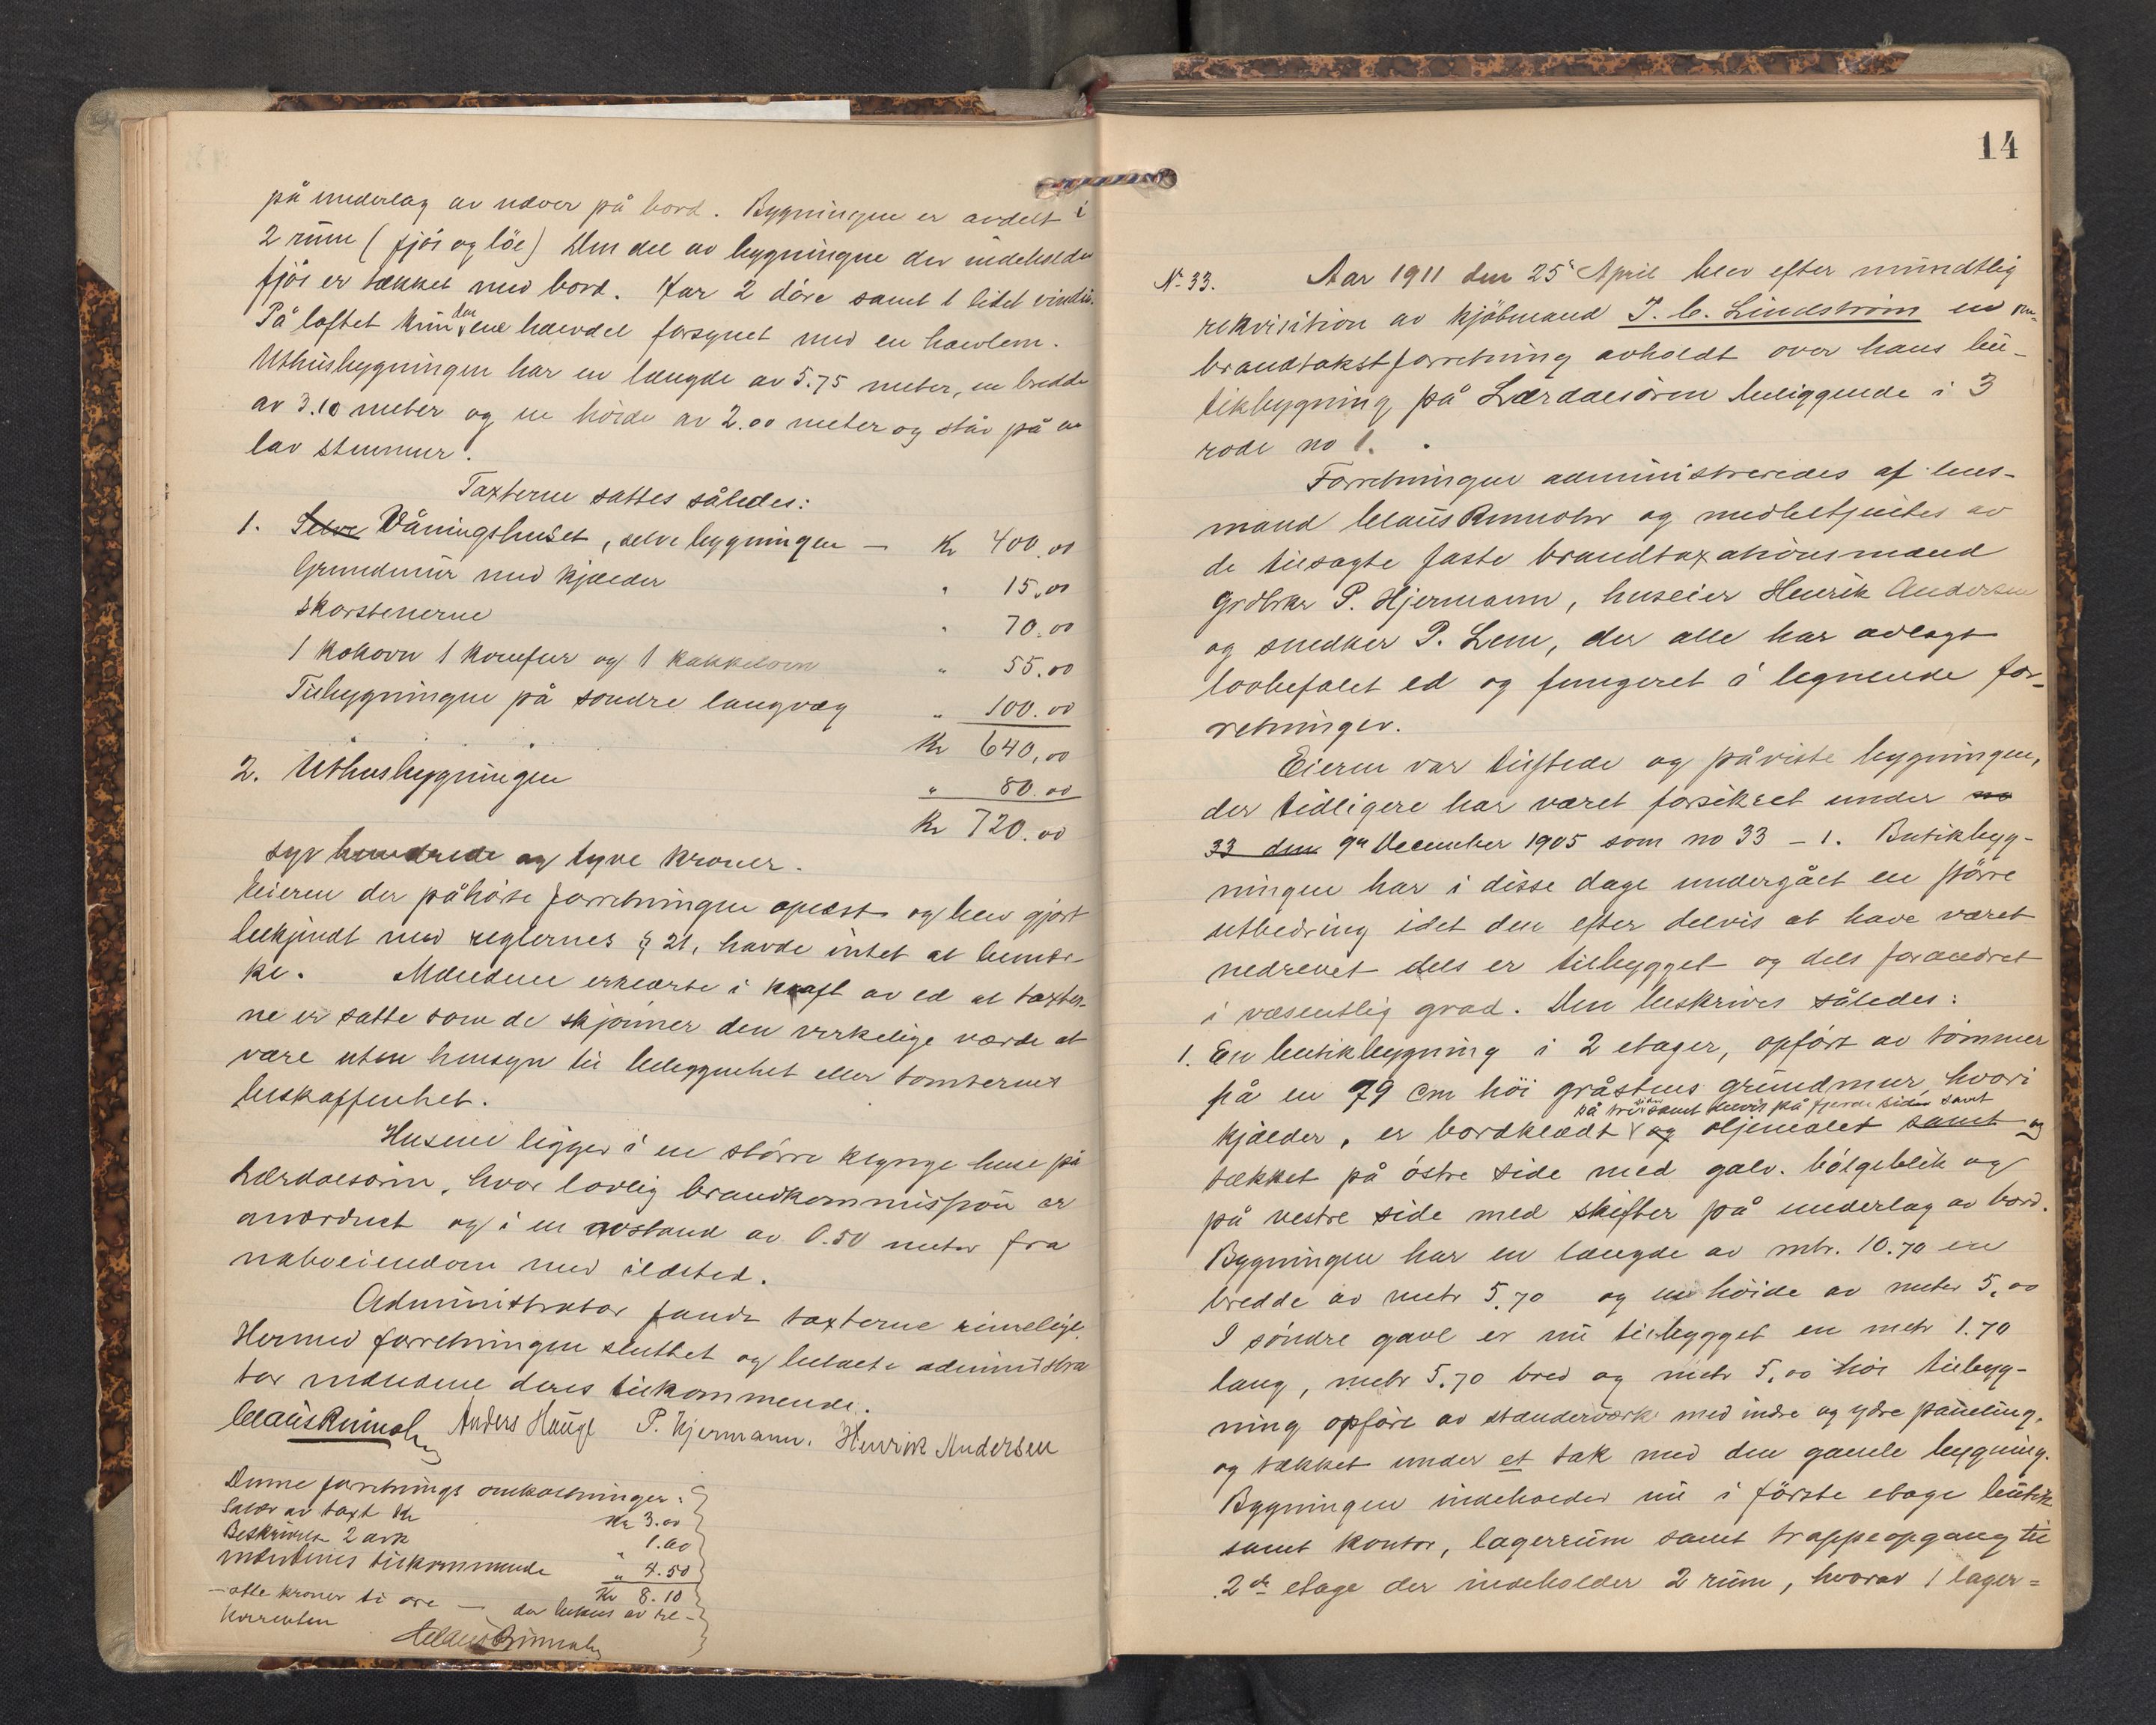 på underlag av næver på bord. Bygningen er avdelt i
2 rum (fjös og löe) Den del av bygningen der indeholder
fjös er tækket med bord. Har 2 döre samt 1 litet vindu.
På loftet kun den ene halvdel forsynet med en hævlem.
Uthusbygningen har en længde av 5.75 meter, en bredde
av 3.10 meter og en höide av 2.00 meter og står på en
lav stenmur.
Taxterne sattes således:
1. Selve Våningshuset, selve bygningen — Kr 400.00
Grundmur med kjælder " 15.00
Skorstenerne " 70.00
1 kokovn 1 komfur og 1 kakkelovn " 55.00
Tilbygningen på söndre langvæg " 100.00
Kr 640,00
2. Uthusbygningen " 80.00
Kr 720.00
syv hundrede og tyve kroner.
Eieren der påhörte forretningen oplæst og blev gjort
bekjendt med reglernes § 21, havde intet at bemær-
ke. Mændene erklærte i kraft av ed at taxter-
ne er satte som de skjönner den virkelige værdi at
være uten hensyn til beliggenhet eller tomternes
beskaffenhet.
Husene ligger i en större klynge huse på
Lærdalsören, hvor lovlig brandkommission er
anordnet og i en avstand av 0.50 meter fra
naboeiendom med ildsted.
Administrator fandt taxterne rimelige.
Hermed forretningen sluttet og betalte administra
tor mændene deres tilkommende.
Claus Rumohr Anders Hauge P. Hjermann. Henrik Andersen
Denne forretnings omkostninger:
Salær av taxt Kr Kr 3.00
Beskrivelse 2 ark " 1.60
Mændenes tilkommende " 4.50
Kr 8.10
— otte kroner ti øre — der betales av re-
kvirenten
Claus Rumohr
14
No 33. Aar 1911 den 25 April blev efter mundtlig
rekvisition av kjöbmand J. C. Lindström en om-
brandtakstforretning avholdt over hans bu-
tikbygning på Lærdalsören beliggende i 3
rode no 1.
Forretningen administreredes af lens-
mand Claus Rumohr og medbetjentes av
de tilsagte faste brandtaxationsmænd
grdbkr P. Hjermann, huseier Henrik Andersen
og snedker P. Lem, der alle har avlagt
lovbefalet ed og fungeret i legnende for-
retninger.
Eieren var tilstede og påviste bygningen,
der tidligere har været forsikret under no
33 den 9de December 1905 som no 33 – 1. Butikbyg-
ningen har i disse dage undergået en större
utbedring idet den efter delvis at have været
nedrevet dels er tilbygget og dels forandret
i væsentlig grad. Den beskrives således:
1. En butikbygning i 2 etager, opfört av tömmer
på en 79 cm höi gråstens grundmur, hvori
på tre sider samt delvis på fjerde siden samt
kjælder, er bordklædt og oljemalet samt og
tækket på östre side med galv. bölgeblik og
på vestre side med skifter på underlag av bord.
Bygningen har en længde av mtr. 10.70 en
bredde av metr 5.70 og en höide av meter 5.00
I söndre gavl er nu tilbygget en metr 1.70
lang, metr 5.70 bred og metr 5.00 höi tilbyg-
ning opfört av stænderværk med indre og ydre paneling.
og tækket under et tak med den gamle bygning.
Bygningen indeholder nu i förste etage butik
samt kontor, lagerrum samt trappeopgang til
2de etage der indeholder 2 rum, hvorav 1 lager=